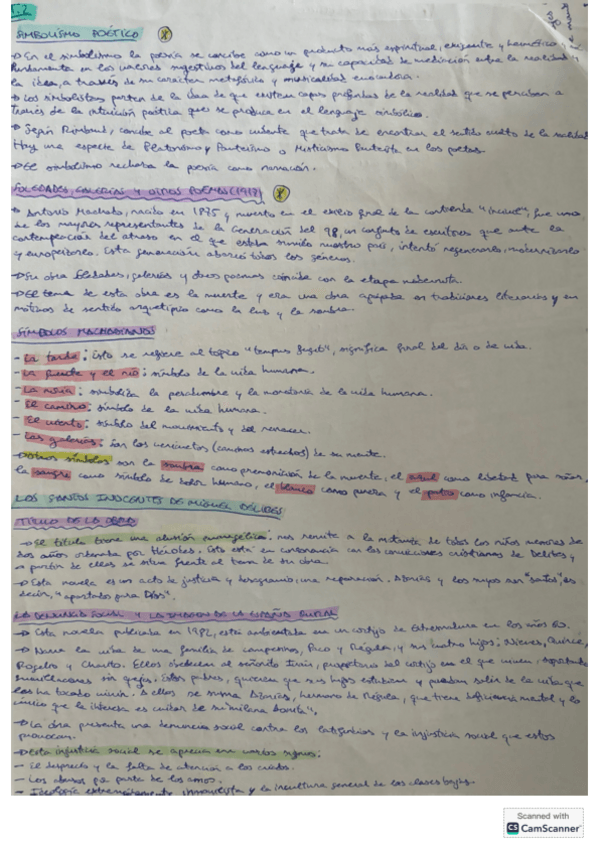 SIMBOLISMO POÉTICO
→ En el simbolismo la poesía se concibe como un producto más espiritual, exigente y hermético
fundamenta en los valores sugestivos del lenguaje y su capacidad de mediación entre la realidad y
la idea, a través de su carácter metafórico y musicalidad
→ Los simbolistas parten de la idea de que existen capas profundas de la realidad que se perciben a
través de la intuición poética que se produce en el lenguaje simbólico.
→ Según Rimbaud, concibe al poeta como vidente que trata de encontrar el sentido oculto de la realidad
Hay una especie de Platonismo y Panteísmo o Misticismo Panteísta en los poetas.
→ El simbolismo rechaza la poesía como narración.
SOLEDADES, GALERÍAS Y OTROS POEMAS (1917)
→ Antonio Machado, nacido en 1875 y muerto en el exilio final de la contienda "incivil", fue uno
de los mayores representantes de la Generación del 98, un conjunto de escritores que ante la
contemplación del atraso en el que estaba sumido nuestro país, intentó regenerarlo, modernizarlo
y europeizarlo. Esta generación abarcó todos los géneros.
→ Su obra Soledades, galerías y otros poemas coincide con la etapa modernista.
→ El tema de esta obra es la muerte y era una obra apegada a tradiciones literarias y en
motivos de sentido arquetípico como la luz y la sombra.
SÍMBOLOS MACHADIANOS
- La tarde: Esto se refiere al tópico "tempus fugit", significa final del día o de vida.
- La fuente y el río: símbolo de la vida humana.
- La noria: simboliza la pesadumbre y la monotonía de la vida humana.
- El camino: símbolo de la vida humana.
- El viento: símbolo del movimiento y del renacer.
- Las galerías: son los vericuetos (caminos estrechos) de su mente.
→ Otros símbolos son la sombra como premonición de la muerte, el azul como libertad para soñar,
la sangre como símbolo de dolor humano, el blanco como pureza y el patio como infancia.
LOS SANTOS INOCENTES DE MIGUEL DELIBES
TÍTULO DE LA OBRA
→ El título tiene una alusión evangélica: nos remite a la matanza de todos los niños menores de
dos años ordenada por Herodes. Esto está en consonancia con las convicciones cristianas de Delibes y
a partir de ellas se sitúa frente al tema de su obra.
→ Esta novela es un acto de justicia y desagravio, una reparación. Azarías y los suyos son "santos", es
decir, "apartados para Dios".
LA DENUNCIA SOCIAL Y LA IMAGEN DE LA ESPAÑA RURAL
→ Esta novela publicada en 1982, está ambientada en un cortijo de Extremadura en los años 60.
→ Narra la vida de una familia de campesinos, Paco y Régula, y sus cuatro hijos: Nieves, Quirce,
Rogelio y Charito. Ellos obedecen al señorito Iván, propietario del cortijo en el que viven, soportando
humillaciones sin quejas. Estos padres, quieren que sus hijos estudien y puedan salir de la vida que
les ha tocado vivir. A ellos se suma Azarías, hermano de Régula, que tiene deficiencia mental y lo
único que le interesa es cuidar de su "milana bonita".
→ La obra presenta una denuncia social contra los latifundios y la injusticia social que estos
provocan.
→ Esta injusticia social se aprecia en varios signos:
- El desprecio y la falta de atención a los criados.
- Los abusos por parte de los amos.
- Ideología extremadamente inmovilista y la incultura general de las clases bajas.
Scanned with
CS CamScanner